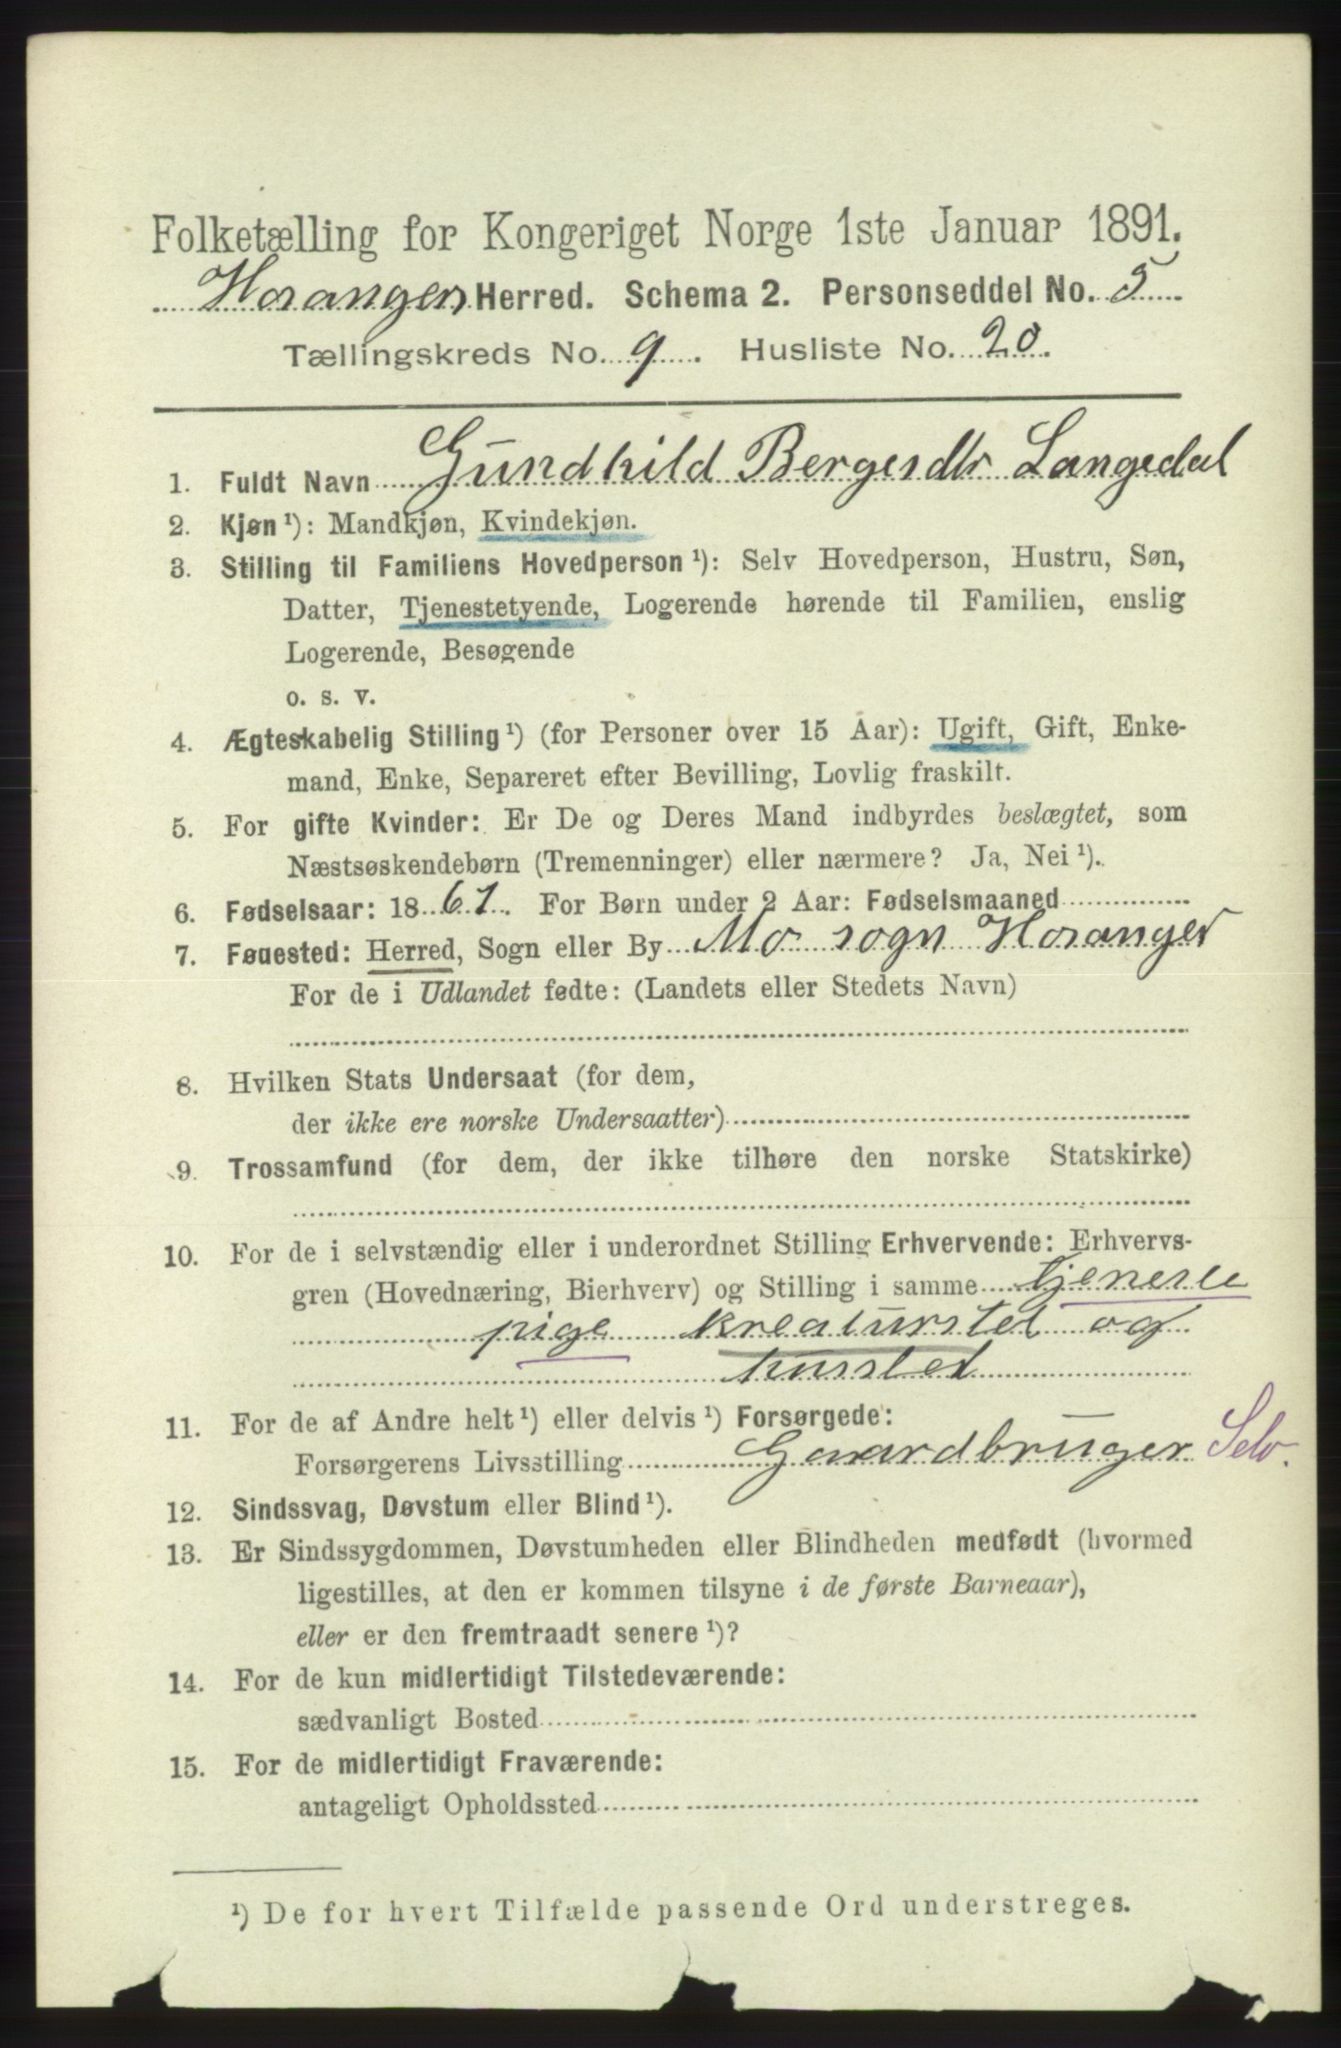 Folketælling for Kongeriget Norge 1ste Januar 1891.
Hosanger Herred. Schema 2. Personseddel No. 5
Tællingskreds No. 9. Husliste No. 20.
1. Fuldt Navn Gundhild Bergesdtr Langedal
2. Kjøn ¹): Mandkjøn, Kvindekjøn.
3. Stilling til Familiens Hovedperson ¹): Selv Hovedperson, Hustru, Søn,
Datter, Tjenestetyende, Logerende hørende til Familien, enslig
Logerende, Besøgende
o. s. v.
4. Ægteskabelig Stilling ¹) (for Personer over 15 Aar): Ugift, Gift, Enke-
mand, Enke, Separeret efter Bevilling, Lovlig fraskilt.
5. For gifte Kvinder: Er De og Deres Mand indbyrdes beslægtet, som
Næstsøskendebørn (Tremenninger) eller nærmere? Ja, Nei ¹).
6. Fødselsaar: 1861. For Børn under 2 Aar: Fødselsmaaned
7. Føuested: Herred, Sogn eller By Mo sogn Hosanger
For de i Udlandet fødte: (Landets eller Stedets Navn)
8. Hvilken Stats Undersaat (for dem,
der ikke ere norske Undersaatter)
9. Trossamfund (for dem, der ikke tilhøre den norske Statskirke)
10. For de i selvstændig eller i underordnet Stilling Erhvervende: Erhvervs-
gren (Hovednæring, Bierhverv) og Stilling i samme tjeneste
pige kreaturstel og
husstel
11. For de af Andre helt ¹) eller delvis ¹) Forsørgede:
Forsørgerens Livsstilling Gaardbruger Selv.
12. Sindssvag, Døvstum eller Blind ¹).
13. Er Sindssygdommen, Døvstumheden eller Blindheden medfødt (hvormed
ligestilles, at den er kommen tilsyne i de første Barneaar),
eller er den fremtraadt senere ¹)?
14. For de kun midlertidigt Tilstedeværende:
sædvanligt Bosted
15. For de midlertidigt Fraværende:
antageligt Opholdssted
¹) De for hvert Tilfælde passende Ord understreges.